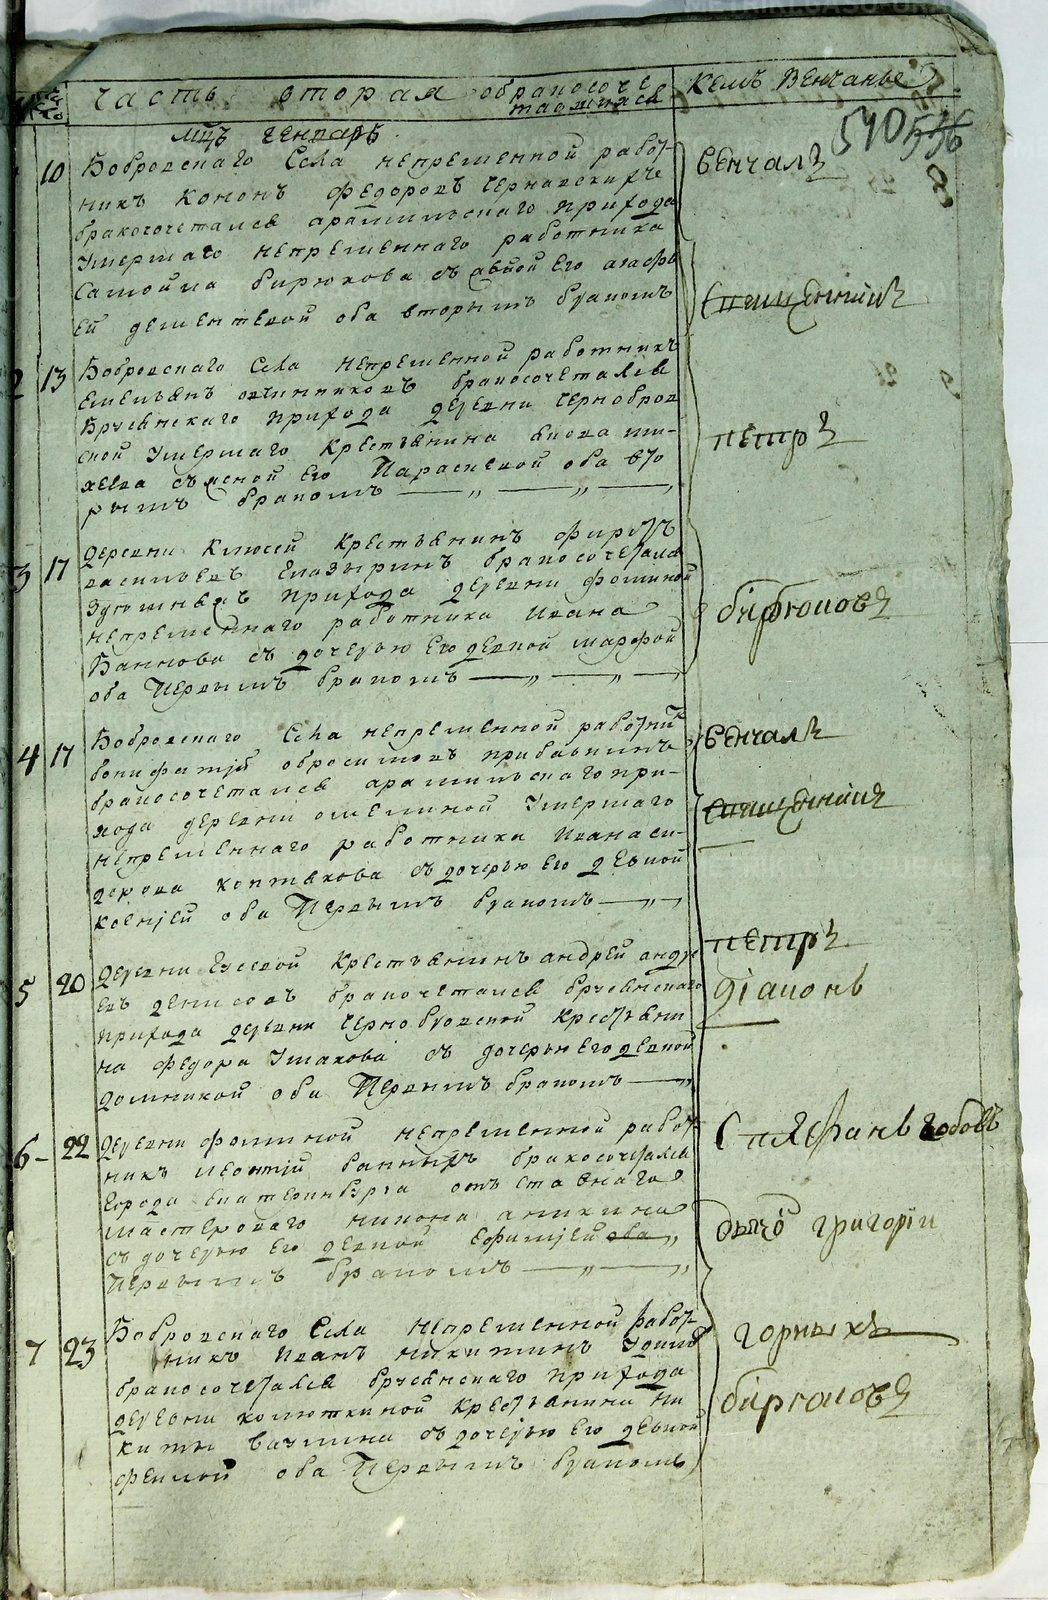 часть вторая о бракосоче
тавшихся
Кемъ Венчаные
мцъ генварь
540
10 Бобровскаго Села непременной работ-
никъ Кононъ Федоровъ
бракосочетался арамильскаго прихода
Умершаго непременнаго работника
Самойла бирюкова съ вдвой Его агафь
ей дементевой оба вторымъ бракомъ
венчалъ
Священникъ
2 13 Бобровскаго Села непременной работникъ
емельянъ овчинниковъ бракосочетался
Брусянскаго прихода деревни Чернобров
ской Умершаго Крестьянина
съ женой Его Параскевой оба вто
рымъ бракомъ
петръ
3 17 деревни Ключей Крестьянинъ фирсъ
васильевъ Глазыринъ бракосочетался
прихода деревни фоминой
непременнаго работника Ивана
Баннова съ дочерью Его девкой марфой
оба Первымъ бракомъ
бирюковъ
4 17 Бобровскаго Села непременной работникъ
бонифатий обросимовъ прибавкинъ
бракосочетался арамильскаго при-
хода деревни Умершаго
непременнаго работника Ивана си-
дорова коптякова съ дочерью Его девкой
ксенией оба Первымъ бракомъ
венчалъ
Священникъ
петръ
5 20 деревни Крестьянинъ андрей андре
евъ денисовъ бракочетался брусянскаго
прихода деревни Чернобровской Крестьяни
на Федора Ушакова съ дочерью Его девкой
домникой оба Первымъ бракомъ
диаконъ
6 22 деревни фоминой непременной работ-
никъ леонтий банныхъ бракосочетался
Города Екатеринбурга отъ ставнаго
мастероваго никона аникина
съ дочерью Его девкой Ефимией оба
Первымъ бракомъ
Стефанъ
григории
7 23 Бобровскаго Села непременной работ-
никъ Иванъ никитинъ
бракосочетался брусянскаго прихода
деревни колюткиной Крестьянина ни
киты вачкина съ дочерью Его девкой
феклой оба Первымъ бракомъ
горныхъ
бирюковъ